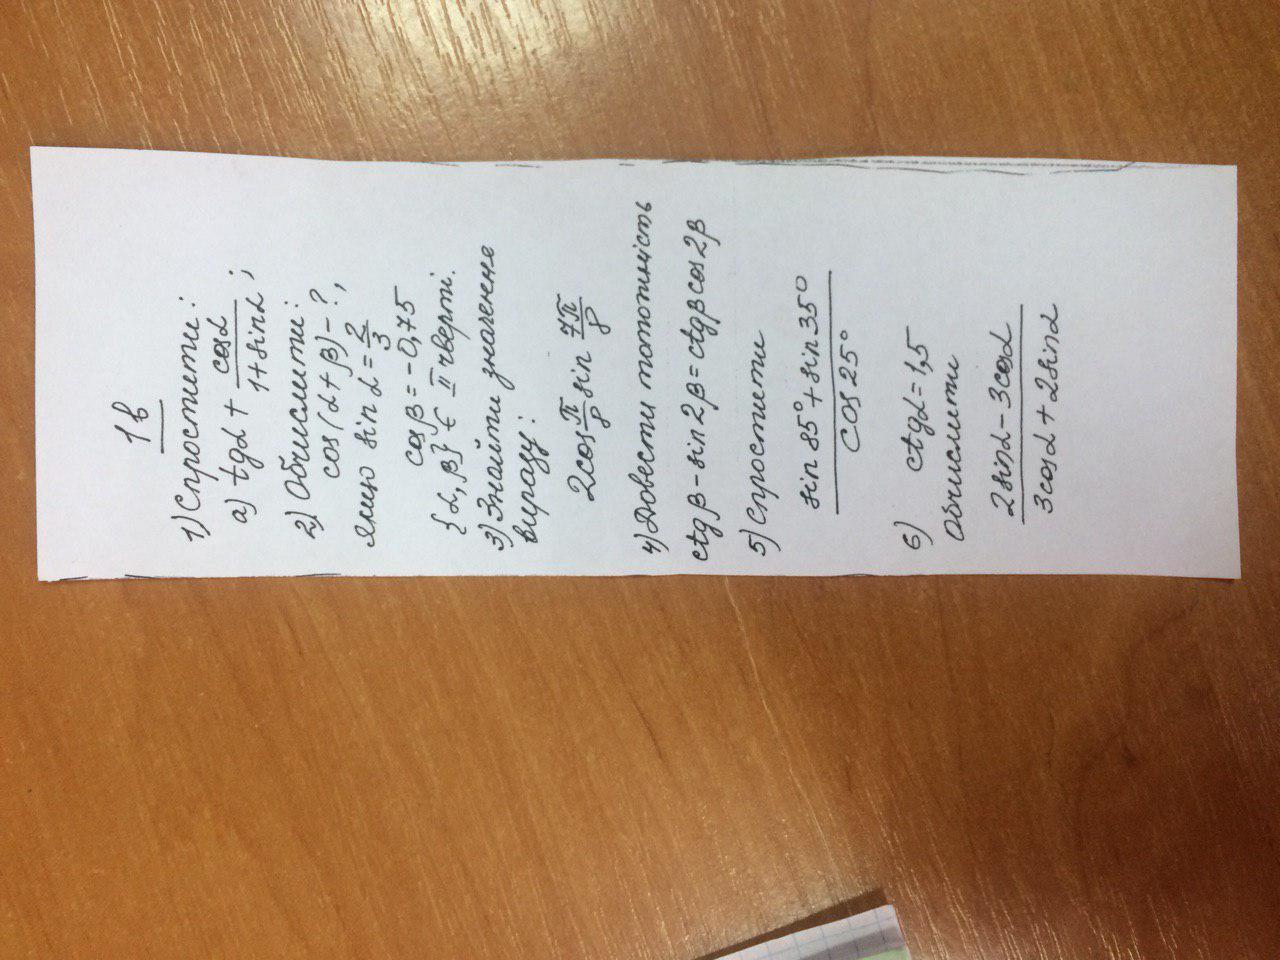 1в
1) Спростити:
а) tgα + cosα / 1+sinα ;
2) Обчислити:
cos(α+β) - ?,
якщо sinα = 2/3
cosβ = -0,75
{α,β} ∈ II чверті.
3) Знайти значення
виразу:
2cos π/8 sin 7π/8
4) Довести тотожність
ctgβ - sin2β = ctgβ cos2β
5) Спростити
sin 85° + sin 35°
cos 25°
6) ctgα = 1,5
Обчислити
2sinα - 3cosα
3cosα + 2sinα